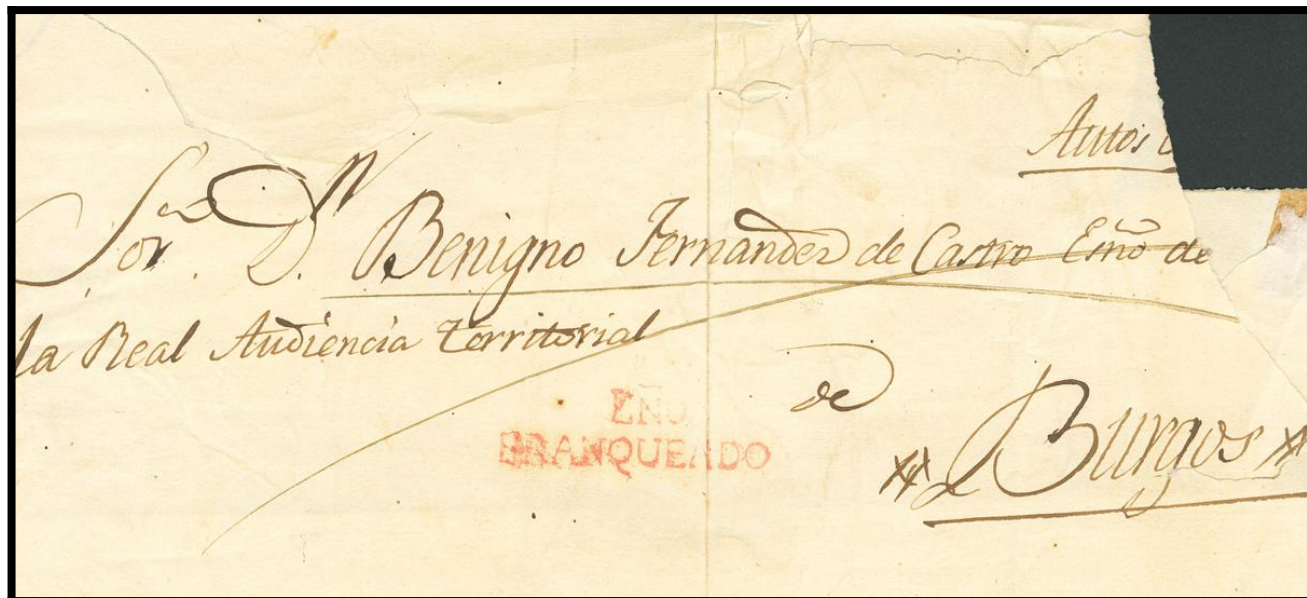 Autos
Sor. Dn. Benigno Fernandez de Castro Esño de
la Real Audiencia Territorial
de
Burgos
FRANQUEADO